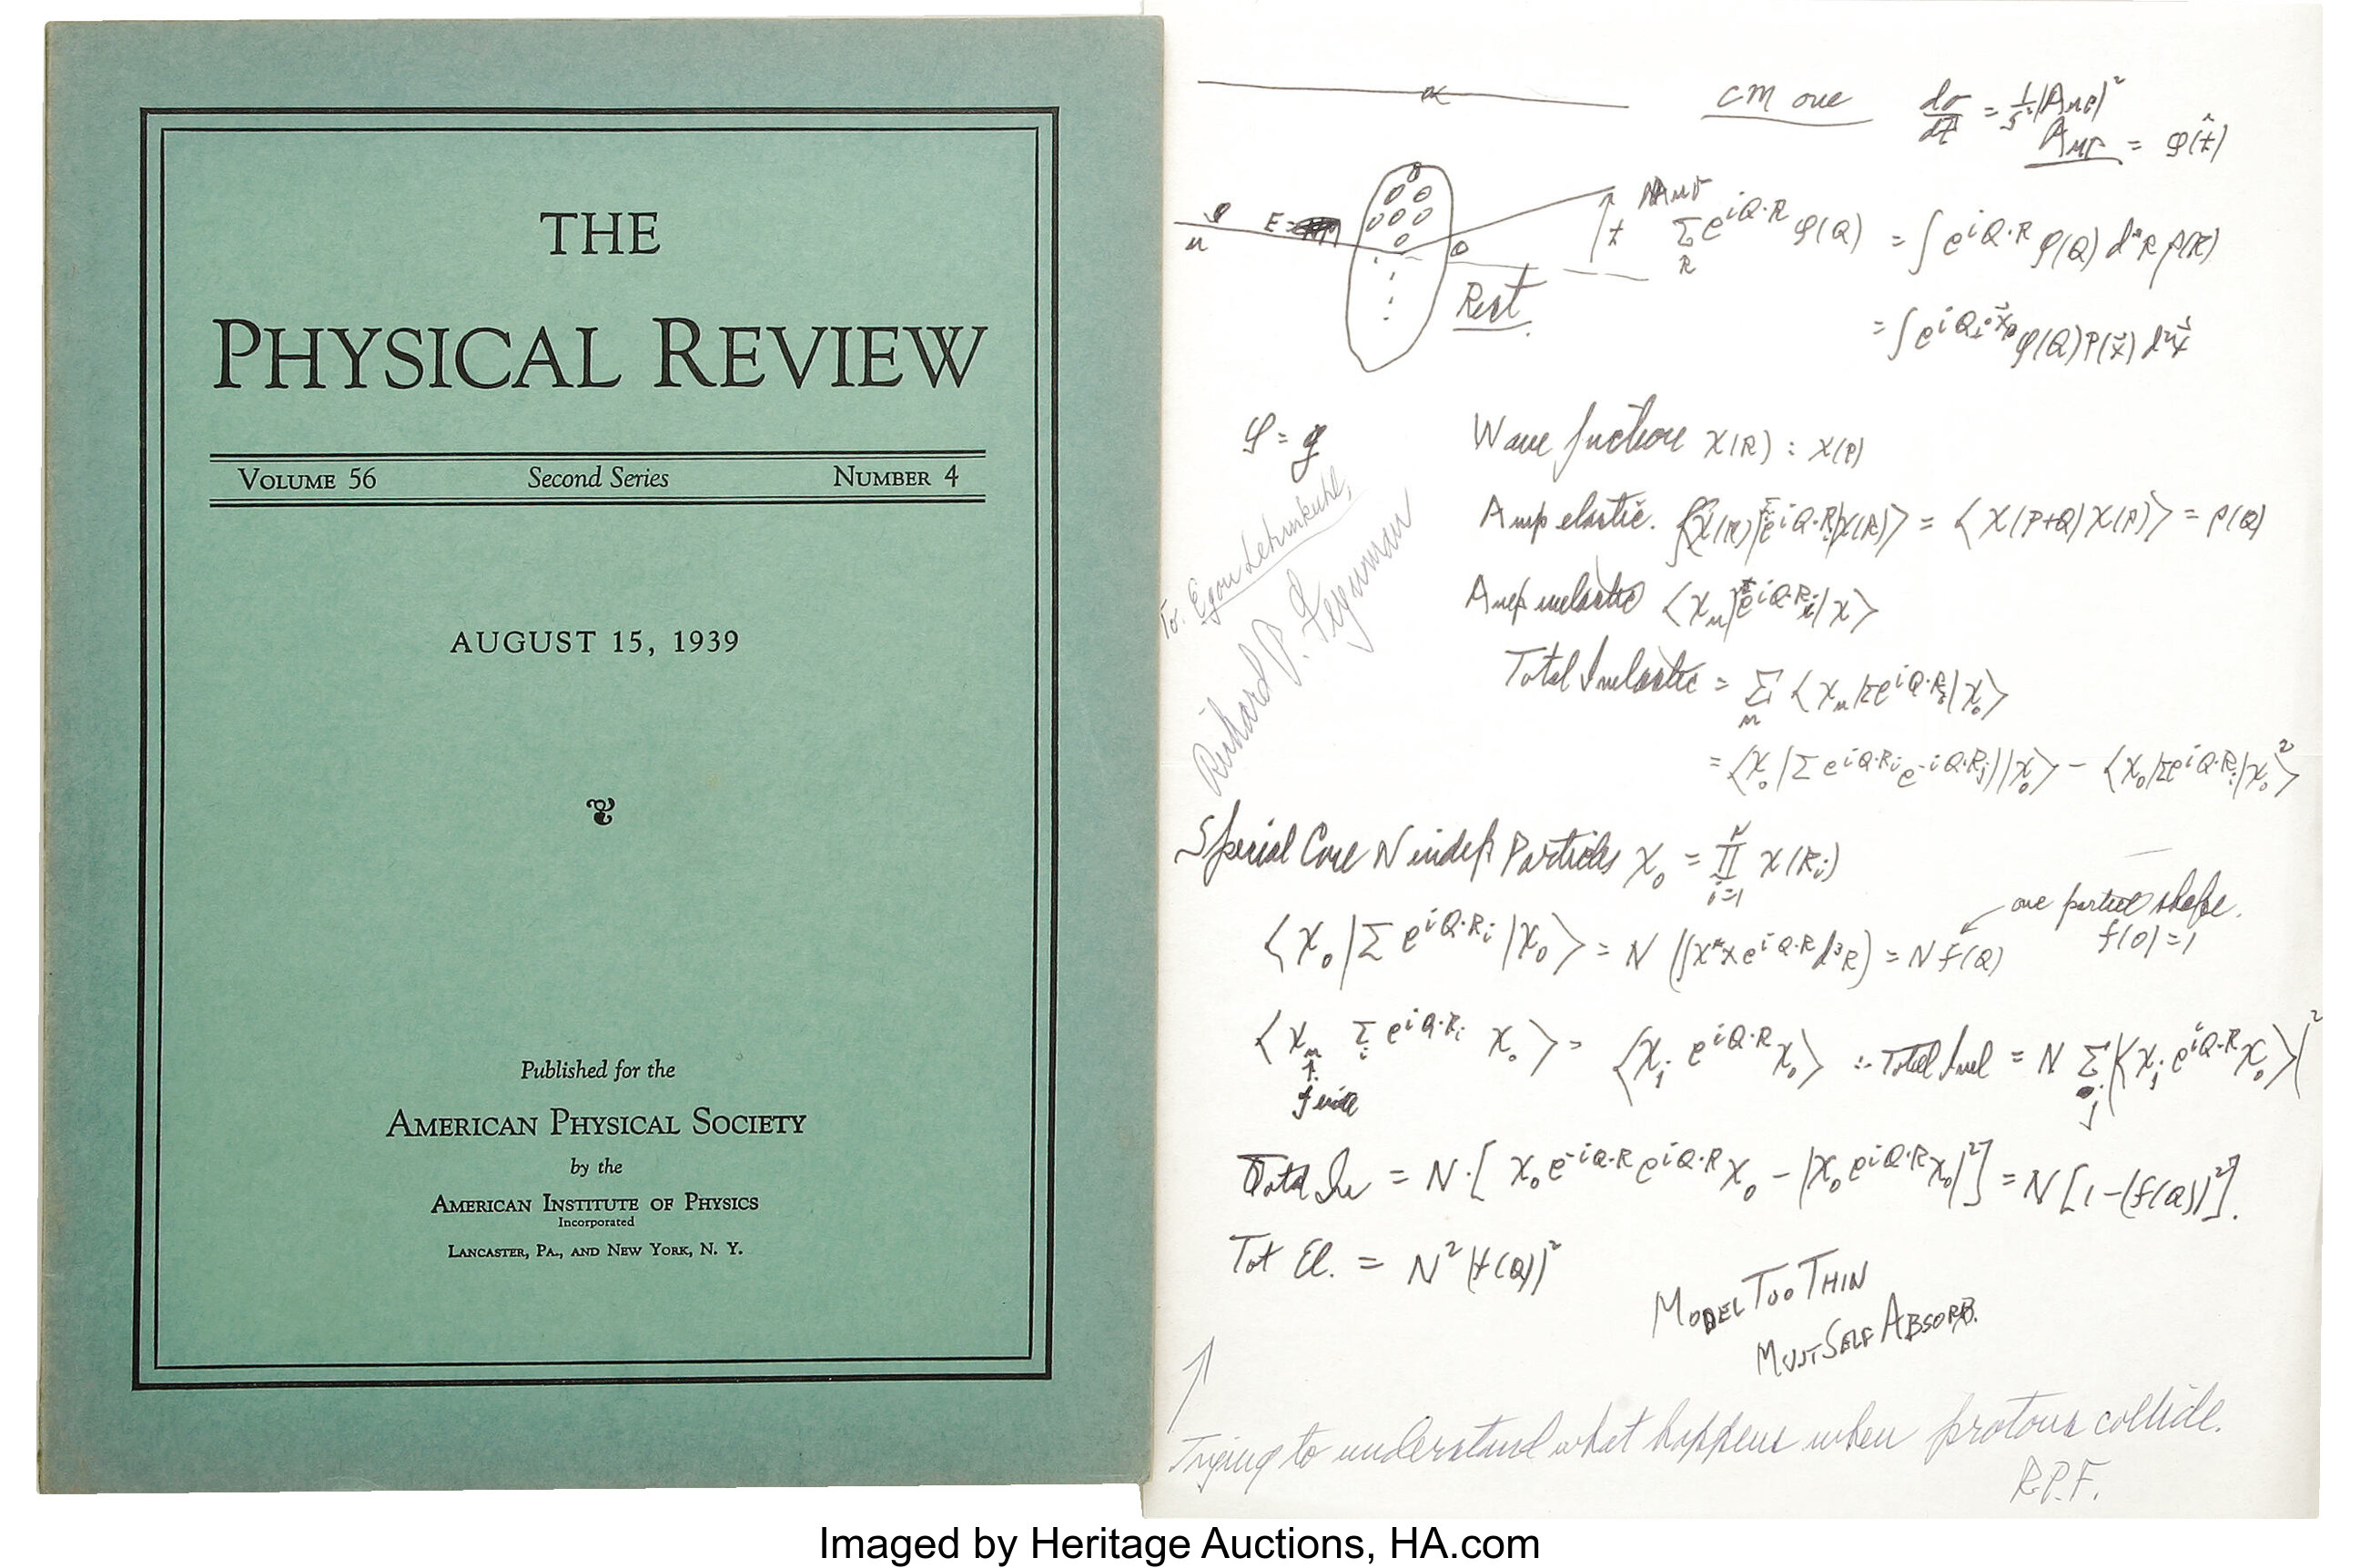 THE
PHYSICAL REVIEW
VOLUME 56 Second Series NUMBER 4
AUGUST 15, 1939
Published for the
AMERICAN PHYSICAL SOCIETY
by the
AMERICAN INSTITUTE OF PHYSICS
Incorporated
LANCASTER, PA., AND NEW YORK, N. Y.
CM one dσ/dt = |Amp|²
Amp = φ(t)
φ E=
t Σ_R e^{iQ·R} φ(Q) = ∫ e^{iQ·R} φ(Q) d R ρ(R)
θ
Rest
= ∫ e^{iQ·x} φ(Q) P(x) d²x
φ = g
Wave fuction χ(R) : χ(P)
To Egon Lehmkuhl,
Richard P. Feynman
Amp elastic. ⟨χ(R)|Σ e^{iQ·R}|χ(R)⟩ = ⟨χ(P+Q) χ(P)⟩ = ρ(Q)
Amp inelastic ⟨χ_n|Σ e^{iQ·R_i}|χ⟩
Total Inelastic = Σ_n ⟨χ_n|Σ e^{iQ·R_i}|χ_0⟩
= ⟨χ_0|Σ e^{iQ·R_i} e^{-iQ·R_j}|χ_0⟩ − ⟨χ_0|Σ e^{iQ·R_i}|χ_0⟩²
Special Case N indep Particles χ_0 = Π_{i=1}^{N} χ(R_i)
one particle shape.
f(0)=1
⟨χ_0|Σ e^{iQ·R_i}|χ_0⟩ = N (∫χ*χ e^{iQ·R} d³R) = N f(Q)
⟨χ_n Σ_i e^{iQ·R_i} χ_0⟩ = ⟨χ_j e^{iQ·R} χ_0⟩ ∴ Total Inel = N Σ_j |⟨χ_j e^{iQ·R} χ_0⟩|²
Total In = N·[χ_0 e^{-iQ·R} e^{iQ·R} χ_0 − |χ_0 e^{iQ·R} χ_0|²] = N[1−(f(Q))²].
Tot El. = N² |f(Q)|²
MODEL TOO THIN
MUST SELF ABSORB.
Trying to understand what happens when protons collide.
R.P.F.
Imaged by Heritage Auctions, HA.com